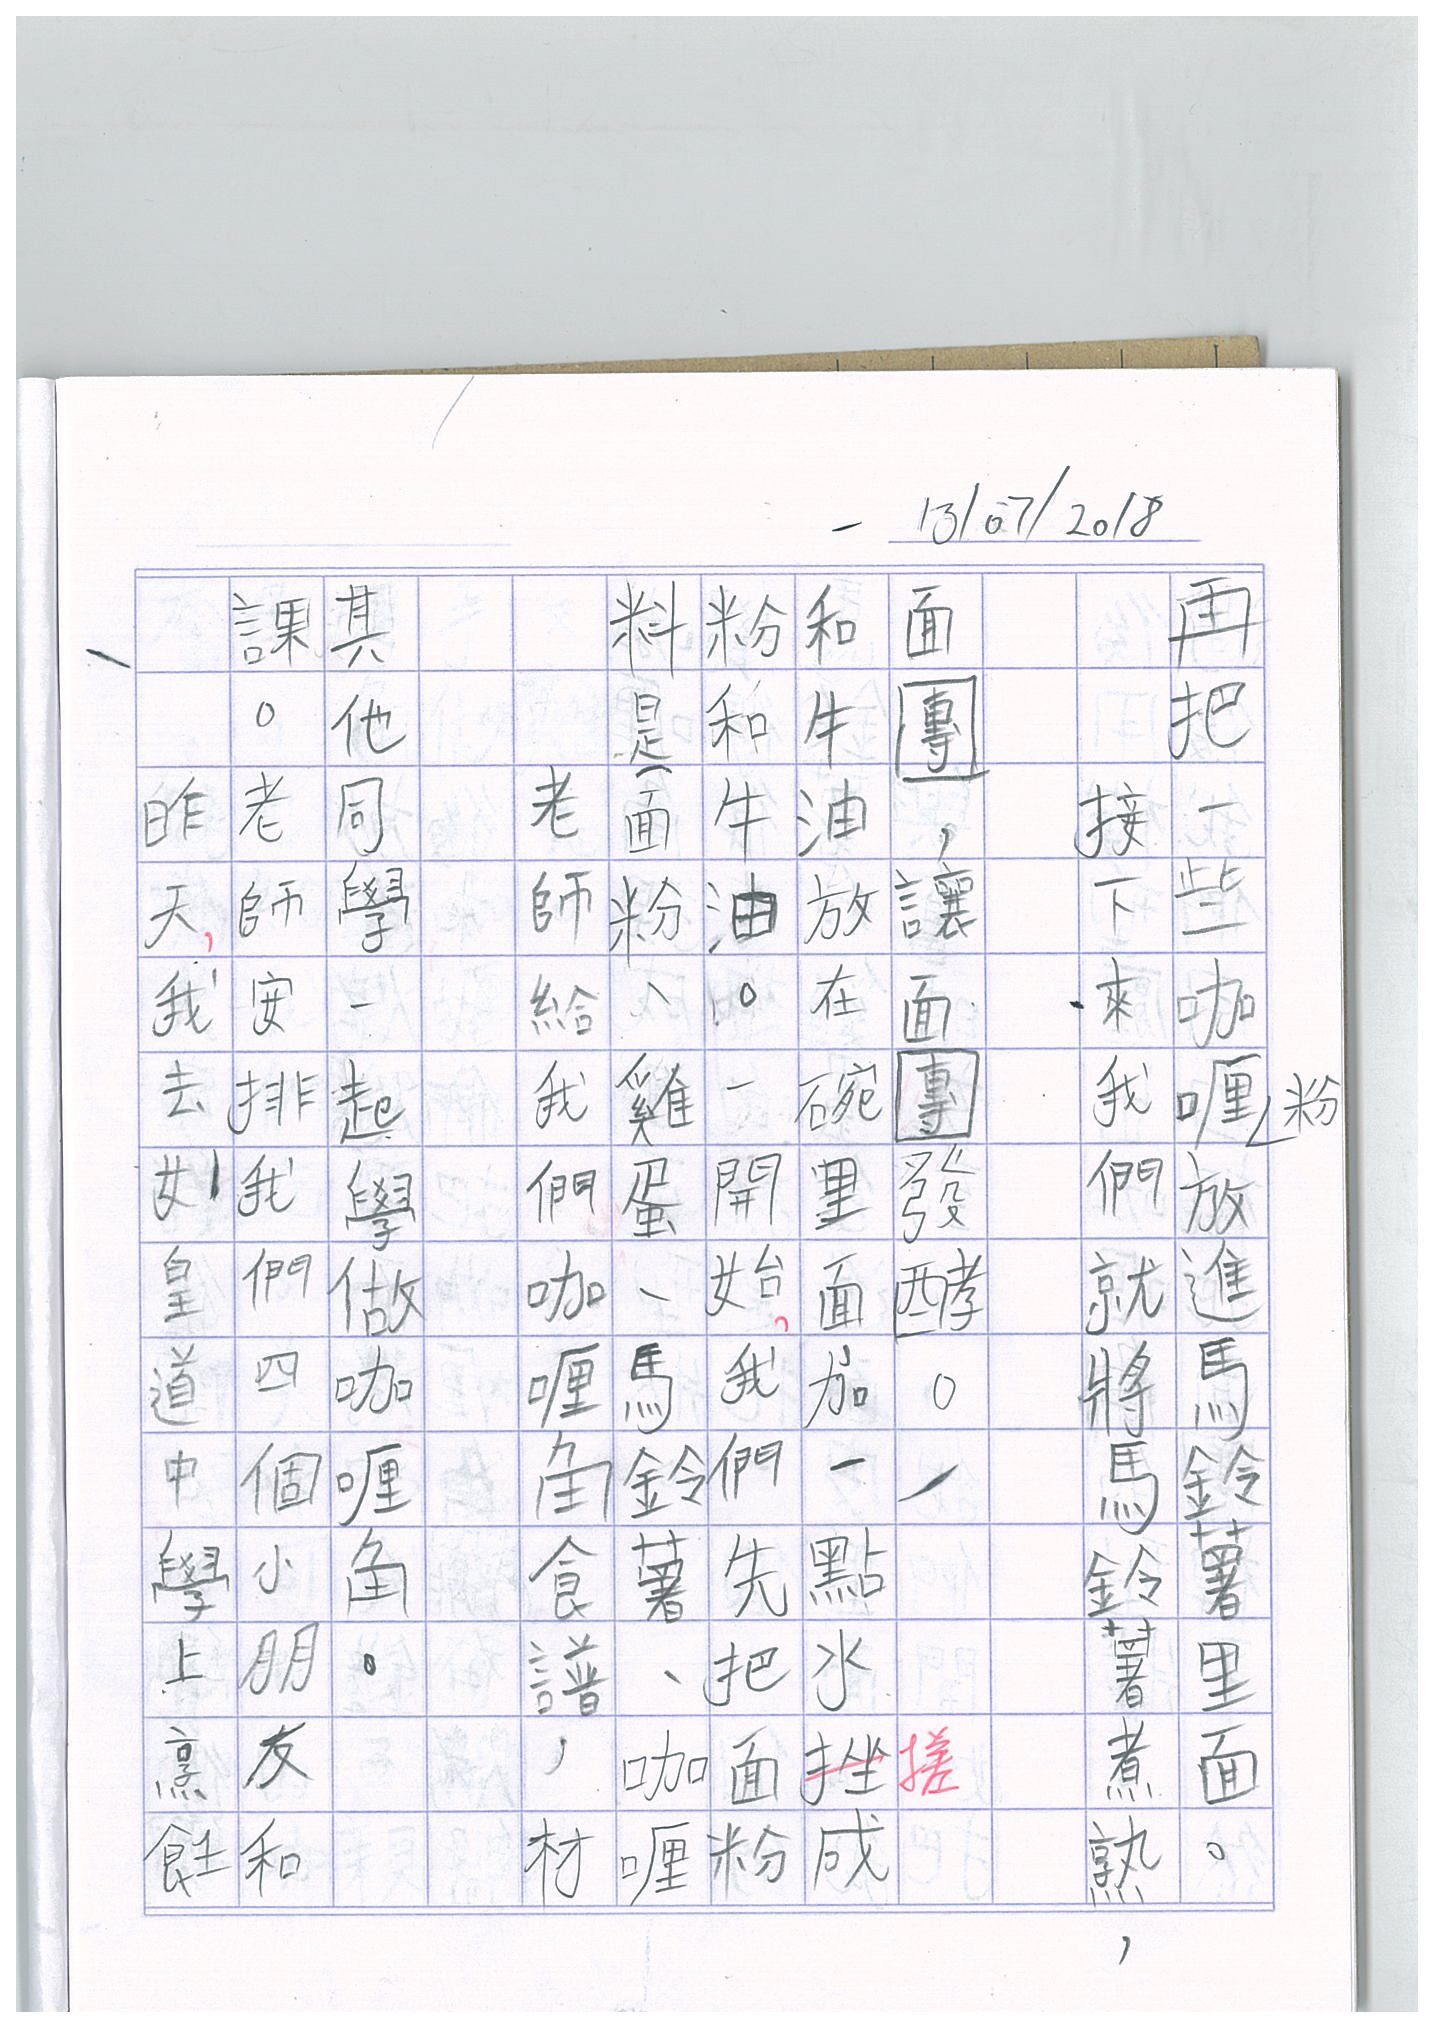 13/07/2018
昨天，我去女皇道中學上烹飪
課。老師安排我們四個小朋友和
其他同學一起學做咖喱角。
老師給我們咖喱角食譜，材
料是面粉、雞蛋、馬鈴薯、咖喱
粉和牛油。一開始，我們先把面粉
和牛油放在碗里面加一點水挫成
搓
面團，讓面團發酵。
接下來我們就將馬鈴薯煮熟，
再把一些咖喱粉放進馬鈴薯里面。